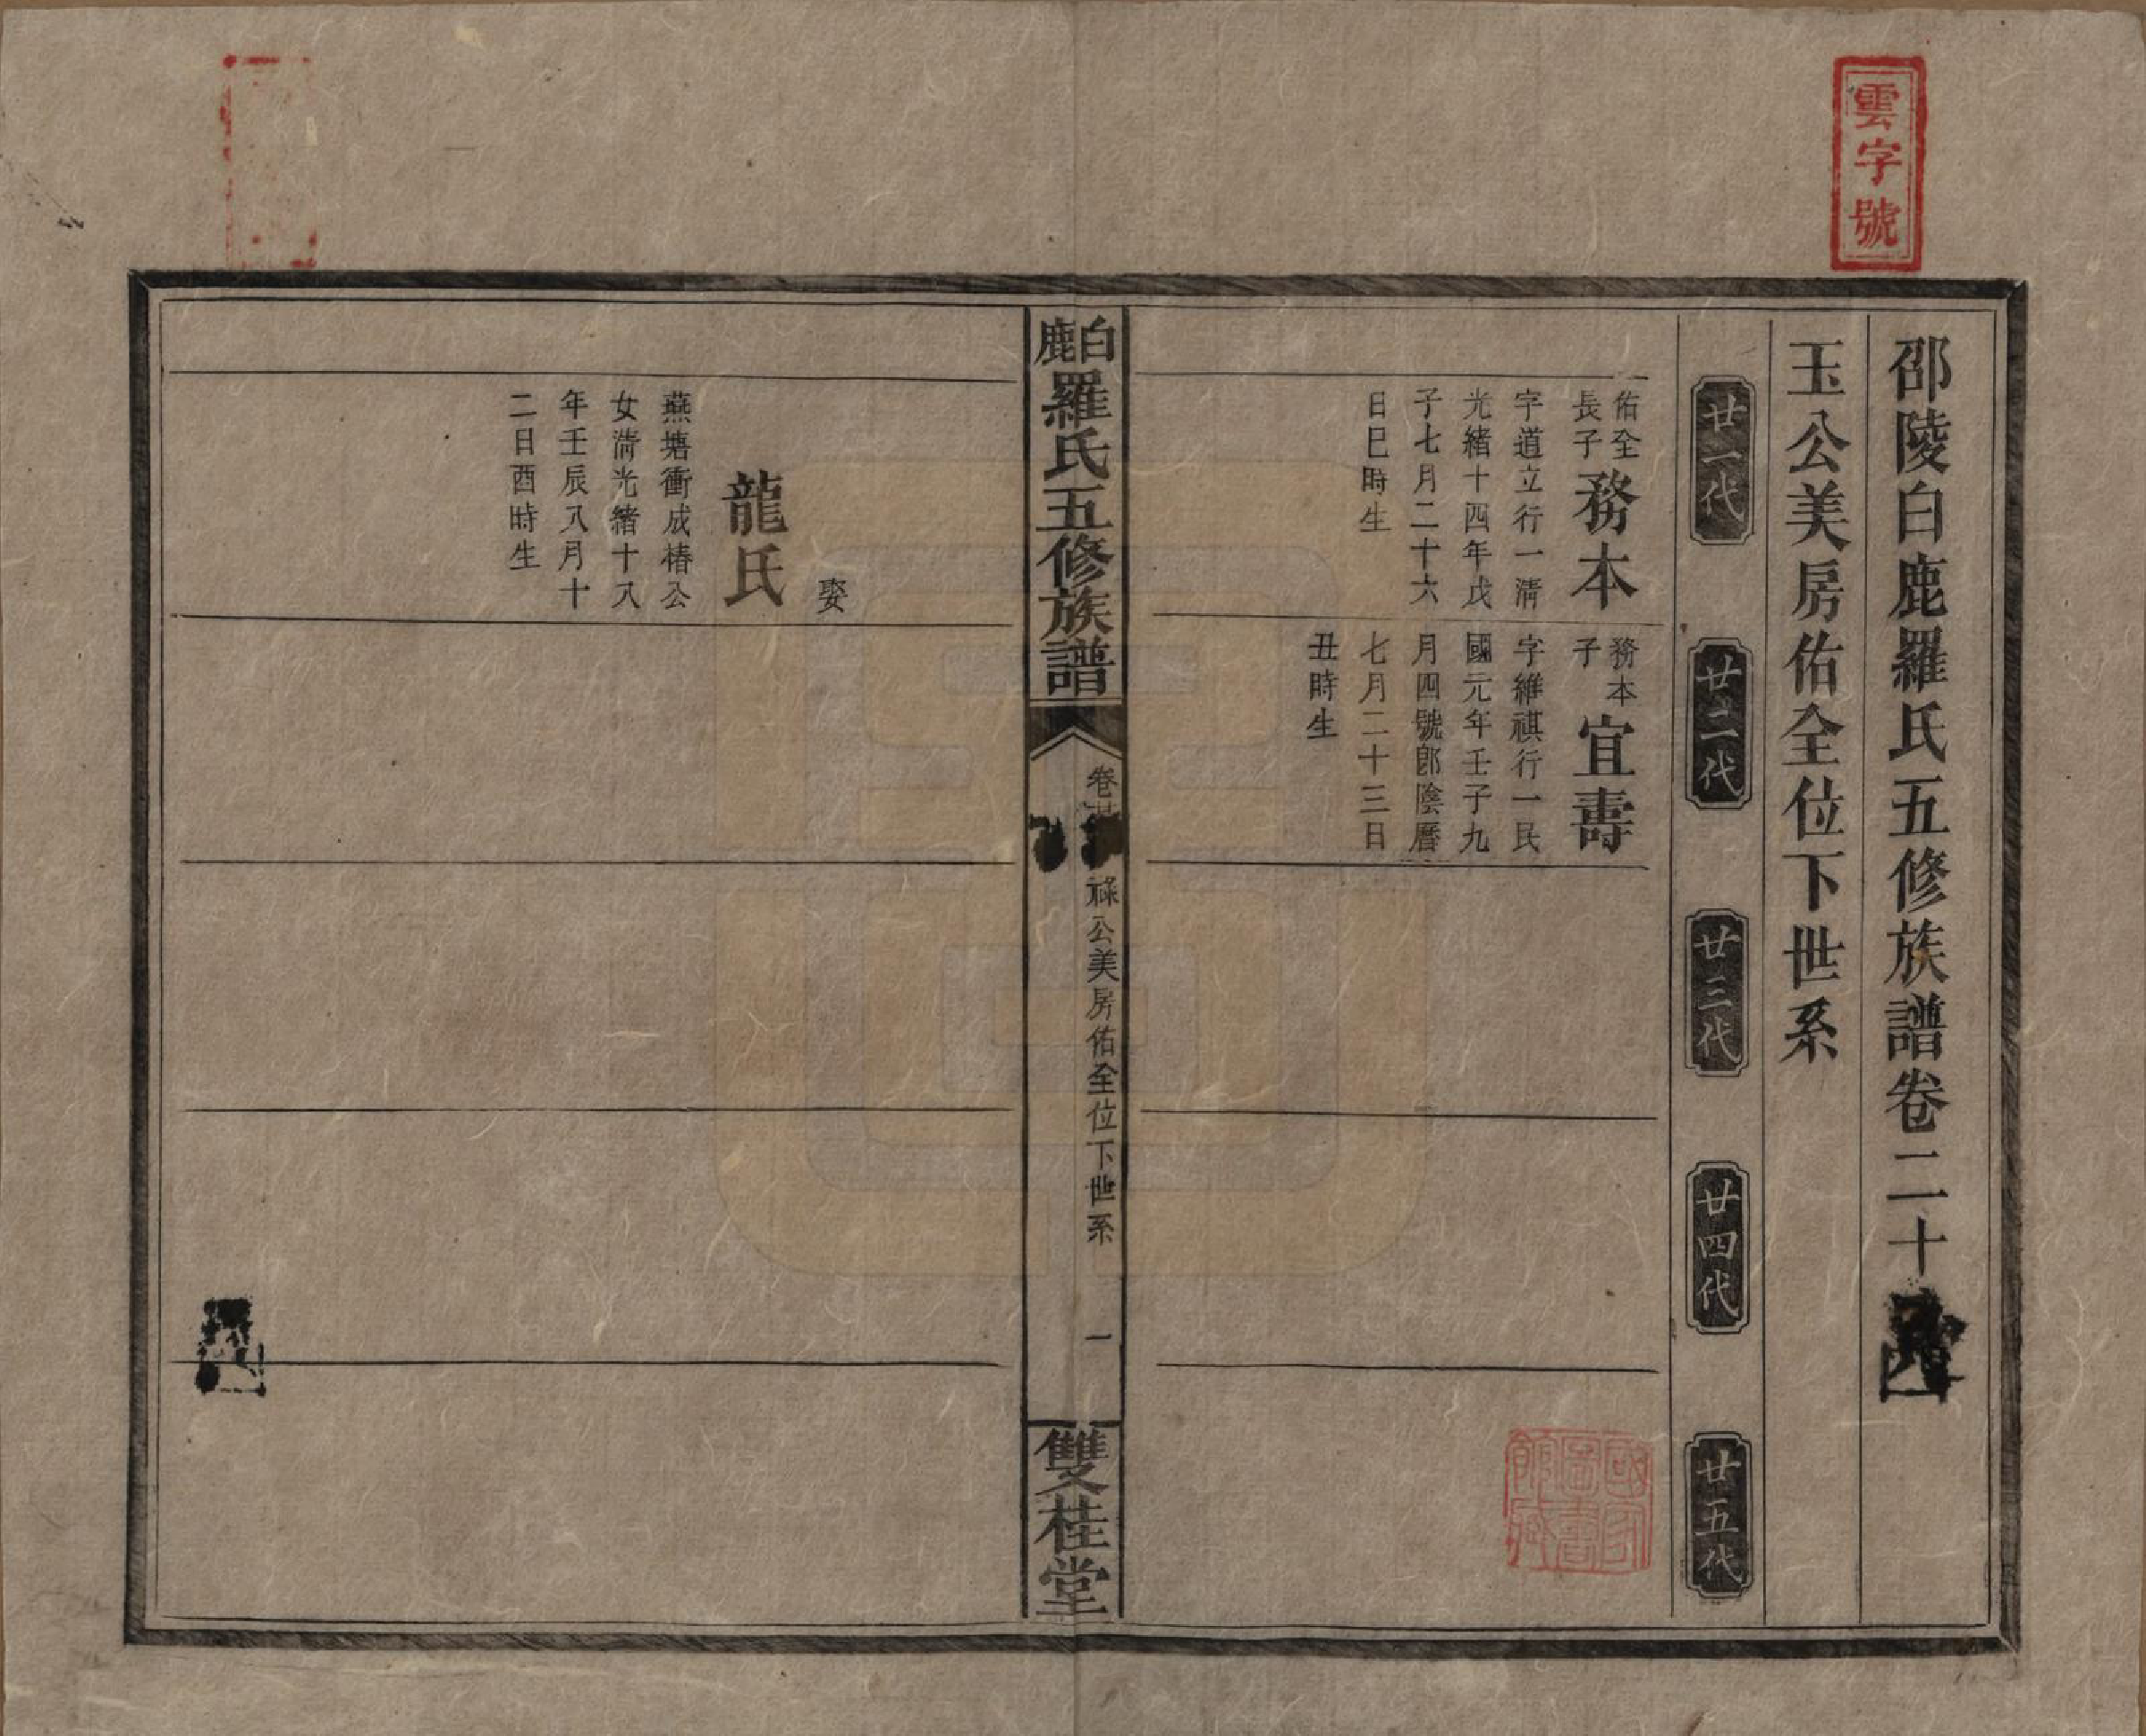 雲字號
邵陵白鹿羅氏五修族譜卷二十
玉公美房佑全位下世系
廿一代
廿二代
廿三代
廿四代
廿五代
佑全
長子
務本
字道立行一清
光緒十四年戊
子七月二十六
日巳時生
務本
子
宜壽
字維祺行一民
國元年壬子九
月四號郎陰曆
七月二十三日
丑時生
國家圖書館藏
白鹿羅氏五修族譜
卷
祿公美房佑全位下世系
一
雙桂堂
娶
龍氏
燕塘衝成椿公
女清光緒十八
年壬辰八月十
二日酉時生